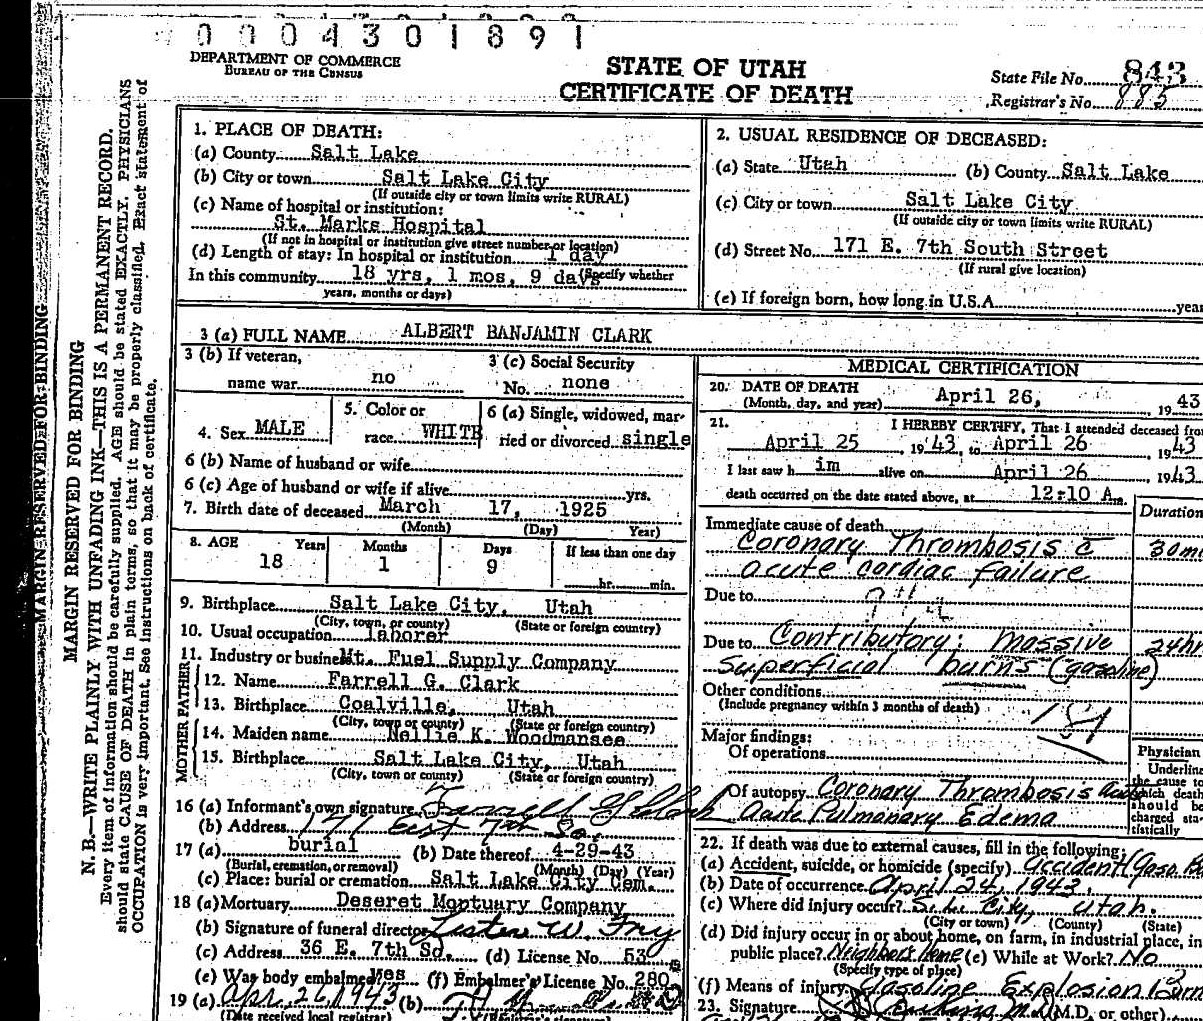 0004301891
DEPARTMENT OF COMMERCE
BUREAU OF THE CENSUS
STATE OF UTAH
CERTIFICATE OF DEATH
State File No. 843
Registrar's No. 885
MARGIN RESERVED FOR BINDING
MARGIN RESERVED FOR BINDING
N. B.—WRITE PLAINLY WITH UNFADING INK—THIS IS A PERMANENT RECORD.
Every item of information should be carefully supplied. AGE should be stated EXACTLY. PHYSICIANS
should state CAUSE OF DEATH in plain terms, so that it may be properly classified. Exact statement of
OCCUPATION is very important. See instructions on back of certificate.
1. PLACE OF DEATH:
(a) County Salt Lake
(b) City or town Salt Lake City
(If outside city or town limits write RURAL)
(c) Name of hospital or institution:
St. Marks Hospital
(If not in hospital or institution give street number or location)
(d) Length of stay: In hospital or institution 1 day
In this community 18 yrs, 1 mos, 9 days (Specify whether
years, months or days)
2. USUAL RESIDENCE OF DECEASED:
(a) State Utah (b) County Salt Lake
(c) City or town Salt Lake City
(If outside city or town limits write RURAL)
(d) Street No. 171 E. 7th South Street
(If rural give location)
(e) If foreign born, how long in U.S.A. year
3 (a) FULL NAME ALBERT BANJAMIN CLARK
3 (b) If veteran,
name war no
3 (c) Social Security
No. none
4. Sex MALE
5. Color or
race WHITE
6 (a) Single, widowed, mar-
ried or divorced single
6 (b) Name of husband or wife
6 (c) Age of husband or wife if alive yrs.
7. Birth date of deceased March 17, 1925
(Month) (Day) Year)
8. AGE Years Months Days If less than one day
18 1 9 hr. min.
9. Birthplace Salt Lake City, Utah
(City, town, or county) (State or foreign country)
10. Usual occupation laborer
11. Industry or business Mt. Fuel Supply Company
FATHER
12. Name Farrell G. Clark
13. Birthplace Coalville, Utah
(City, town or county) (State or foreign country)
MOTHER
14. Maiden name Nellie K. Woodmansee
15. Birthplace Salt Lake City, Utah
(City, town or county) (State or foreign country)
16 (a) Informant's own signature Farrell G Clark
(b) Address 171 East 7th So.
17 (a) burial (b) Date thereof 4-29-43
(Burial, cremation, or removal) (Month) (Day) (Year)
(c) Place: burial or cremation Salt Lake City Cem.
18 (a) Mortuary Deseret Moptuary Company
(b) Signature of funeral director Lester W. Fry
(c) Address 36 E. 7th So. (d) License No. 53
(e) Was body embalmed Yes (f) Embalmer's License No. 280
19 (a) Apr. 26, 1943 (b)
(Date received local registrar)
MEDICAL CERTIFICATION
20. DATE OF DEATH
(Month, day, and year) April 26, 1943
21. I HEREBY CERTIFY, That I attended deceased from
April 25, 1943, to April 26, 1943
I last saw him alive on April 26 1943
death occurred on the date stated above, at 12:10 A m.
Duration
Immediate cause of death
Coronary Thrombosis c̄ 30 m
acute cardiac failure
Due to
Due to Contributory: Massive 24 hr
Superficial burns (gasoline)
Other conditions
(Include pregnancy within 3 months of death)
Major findings:
Of operations
Of autopsy Coronary Thrombosis
Acute Pulmonary Edema
Physician
Underline
the cause to
which death
should be
charged sta-
tistically
22. If death was due to external causes, fill in the following:
(a) Accident, suicide, or homicide (specify) accident (Gaso.
(b) Date of occurrence April 24, 1943.
(c) Where did injury occur? S. L. City, Utah.
(City or town) (County) (State)
(d) Did injury occur in or about home, on farm, in industrial place, in
public place? Neighbors home (e) While at Work? No
(Specify type of place)
(f) Means of injury Gasoline Explosion Burn
23. Signature (M.D. or other)